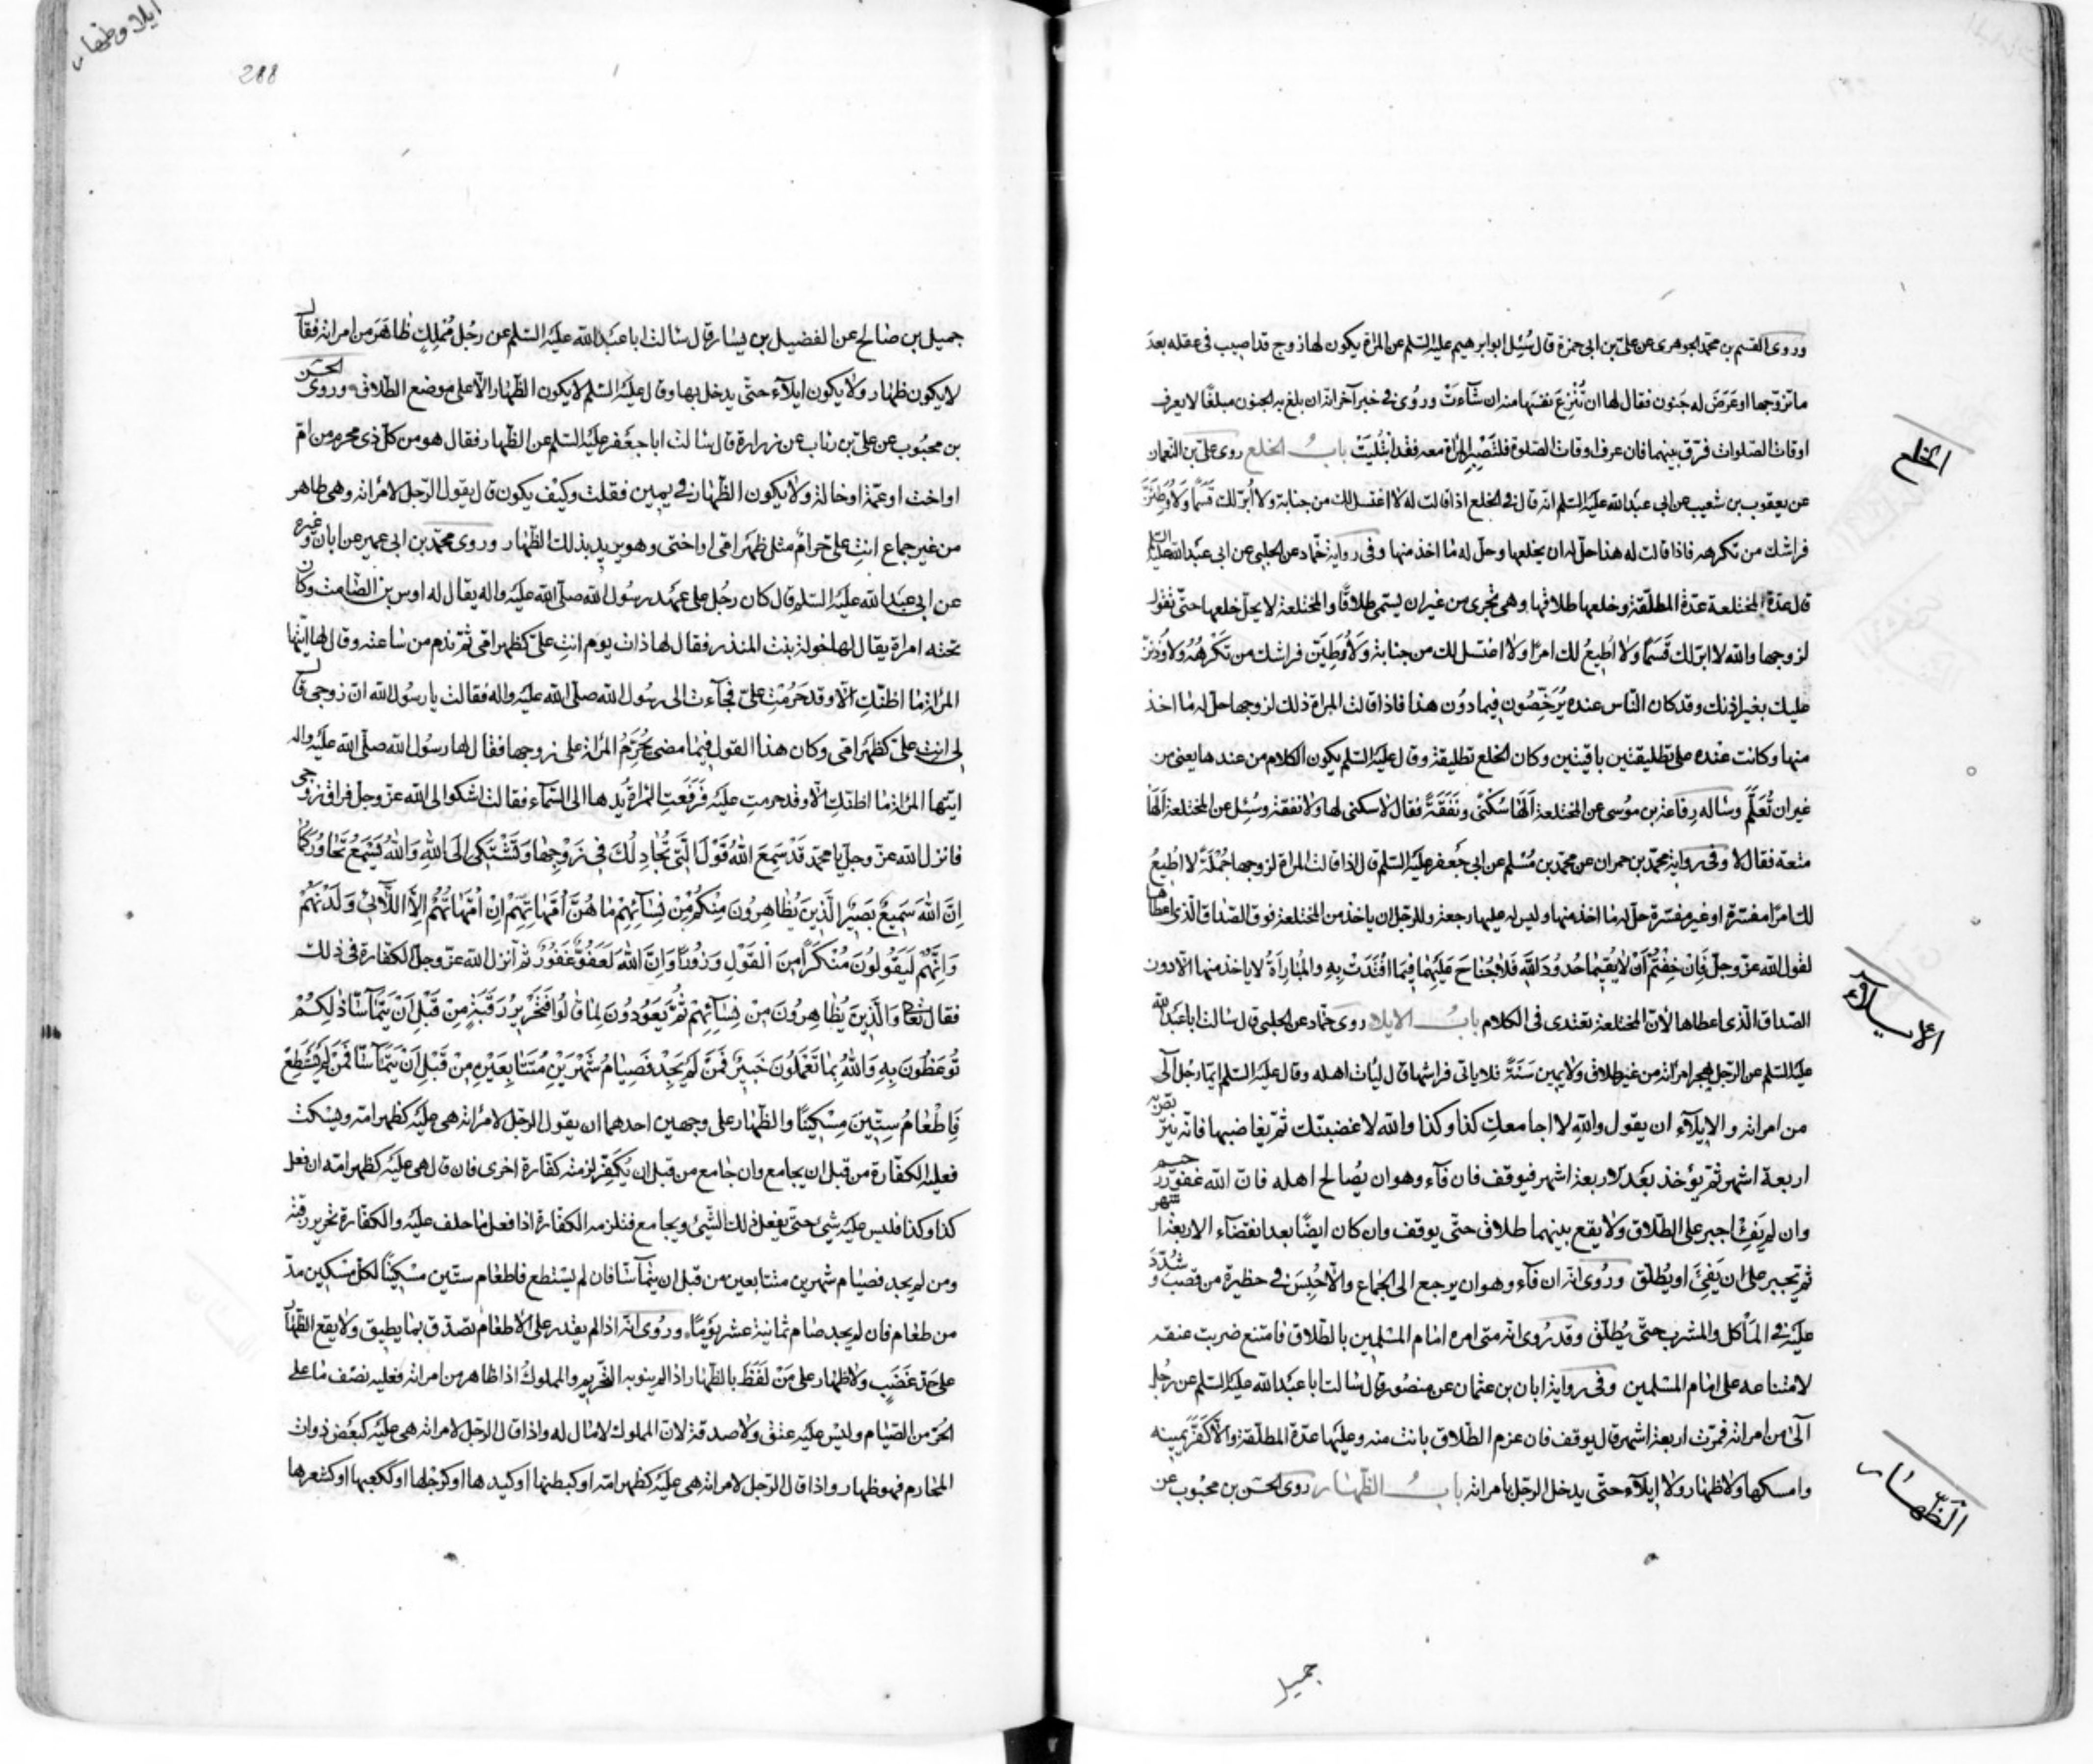 وروى القسم بن محمد الجوهرى عن على بن ابى حمزة قال سُئِل ابو ابرهيم عليه السلم عن المراة يكون لها زوج قد اصيب فى عقله بعدَ
ما تزوجها او عَرَضَ له جنون فقال لها ان تُنْزِعَ نفسَها منه ان شآءَتْ ورُوى فى خبر آخر انه ان بلغ به الجنون مبلغًا لا يعرف
اوقات الصلوات فرّق بينهما فان عرف اوقات الصلوة فلتَصْبِر المراة معه فقد ابْتُلِيَتْ بابُ الخلع روى على بن النعمان
الخلع
عن يعقوب بن شعيب عن ابى عبد الله عليه السلم انه قال فى الخلع اذا قالت له لا اغتسل لك من جنابة ولا اُبرّ لك قَسَمًا ولاُوطِئَنَّ
فراشك من تكرهه فاذا قالت له هذا حلّ له ان يخلعها وحلّ له ما اخذ منها وفى رواية حمّاد عن الحلبى عن ابى عبد الله عليه السلم
قال عدّة المختلعة عدّة المطلّقة وخلعها طلاقها وهى تجرى من غير ان يسمّى طلاقًا والمختلعة لا يحلّ خلعها حتّى تقول
لزوجها والله لا ابرّ لك قَسَمًا ولا اُطيعُ لك امرًا ولا اغتسل لك من جنابة ولاُوطِئَنّ فراشك من تَكْرَهُهُ ولاُوذننّ
عليك بغير اذنك وقد كان النّاس عنده يُرَخِّصُون فيما دوُن هذا فاذا قالت المراة ذلك لزوجها حلّ له ما اخذ
منها وكانت عنده على تطليقتين باقيتين وكان الخلع تطليقة وقال عليه السلم يكون الكلام من عندها يعنى من
غير ان تُعَلَّم وساله رِفاعة بن موُسى عن المختلعة اَلَها سُكْنًى ونَفَقَةٌ فقال لا سكنى لها ولا نفقة وسُئِل عن المختلعة اَلَها
متعة فقال لا وفى رواية محمّد بن حمران عن محمّد بن مُسْلم عن ابى جَعفر عليه السلم قال اذا قالت المراة لزوجها جُمْلَةً لا اُطيعُ
لك امرًا مفسّرة او غير مفسّرة حلّ له ما اخذ منها وليس له عليها رجعة وللرّجل ان ياخذ من المختلعة فوق الصّداق الذى اعطاها
لقول الله عزّ وجلّ فَإنْ خِفْتُمْ اَنْ لا يُقيما حُدوُدَ اللهِ فَلا جُناحَ عَلَيْهِما فيمَا افْتَدَتْ بِهِ والمُبارأةُ لا ياخذ منها الّا دون
الصّداق الذى اعطاها لأنّ المختلعة تعتدى فى الكلام بابُ الايلاء روى حمّاد عن الحلبى قال سالت ابا عبد الله
الايلاء
عليه السلم عن الرّجل يهجر امراته من غير طلاق ولا يمين سَنَةً فلا ياتى فراشها قال ليأت اهله وقال عليه السلم ايّما رجُل آلى
من امراته والايلآء ان يقول والله لا اجامعكِ كذا وكذا والله لاغضبنّك ثم يغاضبها فانّه يتربّص به
اربعة اشهر ثم يؤخذ بَعْد الاربعة اشهر فيوقف فان فآء وهو ان يُصالح اهله فان الله غفور رحيم
وان لم يَفِئْ اجبر على الطّلاق ولا يقع بينهما طلاق حتّى يوقف وان كان ايضًا بعد انقضآء الاربعة اشهر
ثم يجبر على ان يَفِئَ او يُطلّق ورُوى انّه ان فآء وهو ان يرجع الى الجماع والّا حُبِسَ فى حظيرة من قصب وشُدّدَ
عليه فى المأكل والمشرب حتّى يُطلّق وقد رُوى انّه متى امره امام المسْلمين بالطّلاق فامتنع ضربت عنقه
لامتناعه على امام المسْلمين وفى رواية ابان بن عثمان عن منصور قال سالت ابا عبد الله عليه السلم عن رجُل
آلى من امراته فمرّت اربعة اشهر قال يوقف فان عزم الطّلاق بانت منه وعليها عدّة المطلّقة والّا كَفَّرَ يمينه
وامسكها ولا ظهار ولا ايلآء حتّى يدخل الرّجل بامراته بابُ الظّهار روى الحسَن بن محبوب عن
الظِّهار
جميل
ايلاء وظهار
288
جميل بن صالح عن الفضيل بن يسار قال سالت ابا عبد الله عليه السلم عن رجُل مُمْلِكٍ ظاهَرَ من امراته فقال
لا يكون ظهار ولا يكون ايلآء حتّى يدخل بها وقال عليه السلم لا يكون الظّهار الّا على موضع الطّلاق وروى الحسن
بن محبُوب عن على بن رئاب عن زرارة قال سالت ابا جعفر عليه السلم عن الظّهار فقال هو من كلّ ذى محرم من امّ
او اخت او عمّة او خالة ولا يكون الظّهار فى يمين فقلت وكيف يكون قال يقول الرّجل لامراته وهى طاهر
من غير جماع انتِ علىّ حرامٌ مثل ظهر امّى او اختى وهو يريد بذلك الظّهار وروى محمّد بن ابى عمير عن ابان وغيره
عن ابى عبد الله عليه السلم قال كان رجُل على عهْد رسُول الله صلّى الله عليه واله يقال له اوس بن الصّامت وكان
تحته امراة يقال لها خولة بنت المنذر فقال لها ذات يوم انتِ علىّ كظهر امّى ثم ندم من ساعته وقال لها ايّتها
المراة ما اظنّكِ الّا وقد حَرُمْتِ علىّ فجآءت الى رسُول الله صلّى الله عليه واله فقالت يا رسُول الله انّ زوجى قال
لى انتِ علىّ كظهر امّى وكان هذا القول فيما مضى يُحَرّمُ المراة على زوجها فقال لها رسول الله صلّى الله عليه واله
ايّتها المراة ما اظنّكِ الّا وقد حرمتِ عليه فَرَفَعَتِ المراةُ يدها الى السّمآء فقالت اشكوا الى الله عزّ وجلّ فراق زوجى
فانزل الله عزّ وجلّ يا محمّد قَدْ سَمِعَ اللهُ قَوْلَ الَّتى تُجادِلُكَ فى زَوْجِها وَتَشْتَكى اِلَى اللهِ وَاللهُ يَسْمَعُ تَحاوُرَكُما
اِنَّ اللهَ سَميعٌ بَصيرٌ الَّذينَ يُظاهِرُونَ مِنْكُمْ مِنْ نِسآئِهِمْ ما هُنَّ اُمَّهاتِهِمْ اِنْ اُمَّهاتُهُمْ اِلَّا اللّآئى وَلَدْنَهُمْ
وَاِنَّهُمْ لَيَقُولُونَ مُنْكَرًا مِنَ الْقَوْلِ وَزُورًا وَاِنَّ اللهَ لَعَفُوٌّ غَفُورٌ ثم أنزل الله عزّ وجلّ الكفّارة فى ذلك
فقال تعالى وَالَّذينَ يُظاهِرُونَ مِنْ نِسآئِهِمْ ثُمَّ يَعُودُونَ لِما قالُوا فَتَحْريرُ رَقَبَةٍ مِنْ قَبْلِ اَنْ يَتَمآسّا ذلِكُمْ
تُوعَظُونَ بِهِ وَاللهُ بِما تَعْمَلُونَ خَبيرٌ فَمَنْ لَمْ يَجِدْ فَصِيامُ شَهْرَيْنِ مُتَتابِعَيْنِ مِنْ قَبْلِ اَنْ يَتَمآسّا فَمَنْ لَمْ يَسْتَطِعْ
فَاِطْعامُ سِتّينَ مِسْكينًا والظّهار على وجهين احدهما ان يقول الرّجل لامراته هى عليه كظهر امّه ويسكت
فعليه الكفّارة من قبل ان يجامع وان جامع من قبل ان يُكَفّر لزمته كفّارة اخرى فان قال هى عليه كظهر امّه ان فعل
كذا وكذا فليس عليه شىء حتّى يفعل ذلك الشّىء ويجامع فتلزمه الكفّارة اذا فعل ما حلف عليه والكفّارة تحرير رقبة
ومن لم يجد فصيام شهرين متتابعين من قبل ان يتمآسّا فان لم يستطع فاطعام ستّين مسْكينًا لكلّ مسكين مدّ
من طعام فان لم يجد صام ثمانية عشر يَوْمًا ورُوى انّه اذا لم يقدر على الاطعام تصدّق بما يطيق ولا يقع الظّهار
على حدّ غَضَبٍ ولا ظهار على مَنْ لَفَظَ بالظّهار اذا لم ينو به التّحريم والمملوكُ اذا ظاهر من امراته فعليه نصْف ما على
الحُرّ من الصّيام وليس عليه عتق ولا صدقة لان المملوك لا مال له واذا قال الرّجل لامراته هى عليه كبعض ذوات
المحارم فهو ظهار واذا قال الرّجل لامراته هى عليه كظهر امّه او كبطنها او كيدها او كرجلها او ككعبها او كشعرها